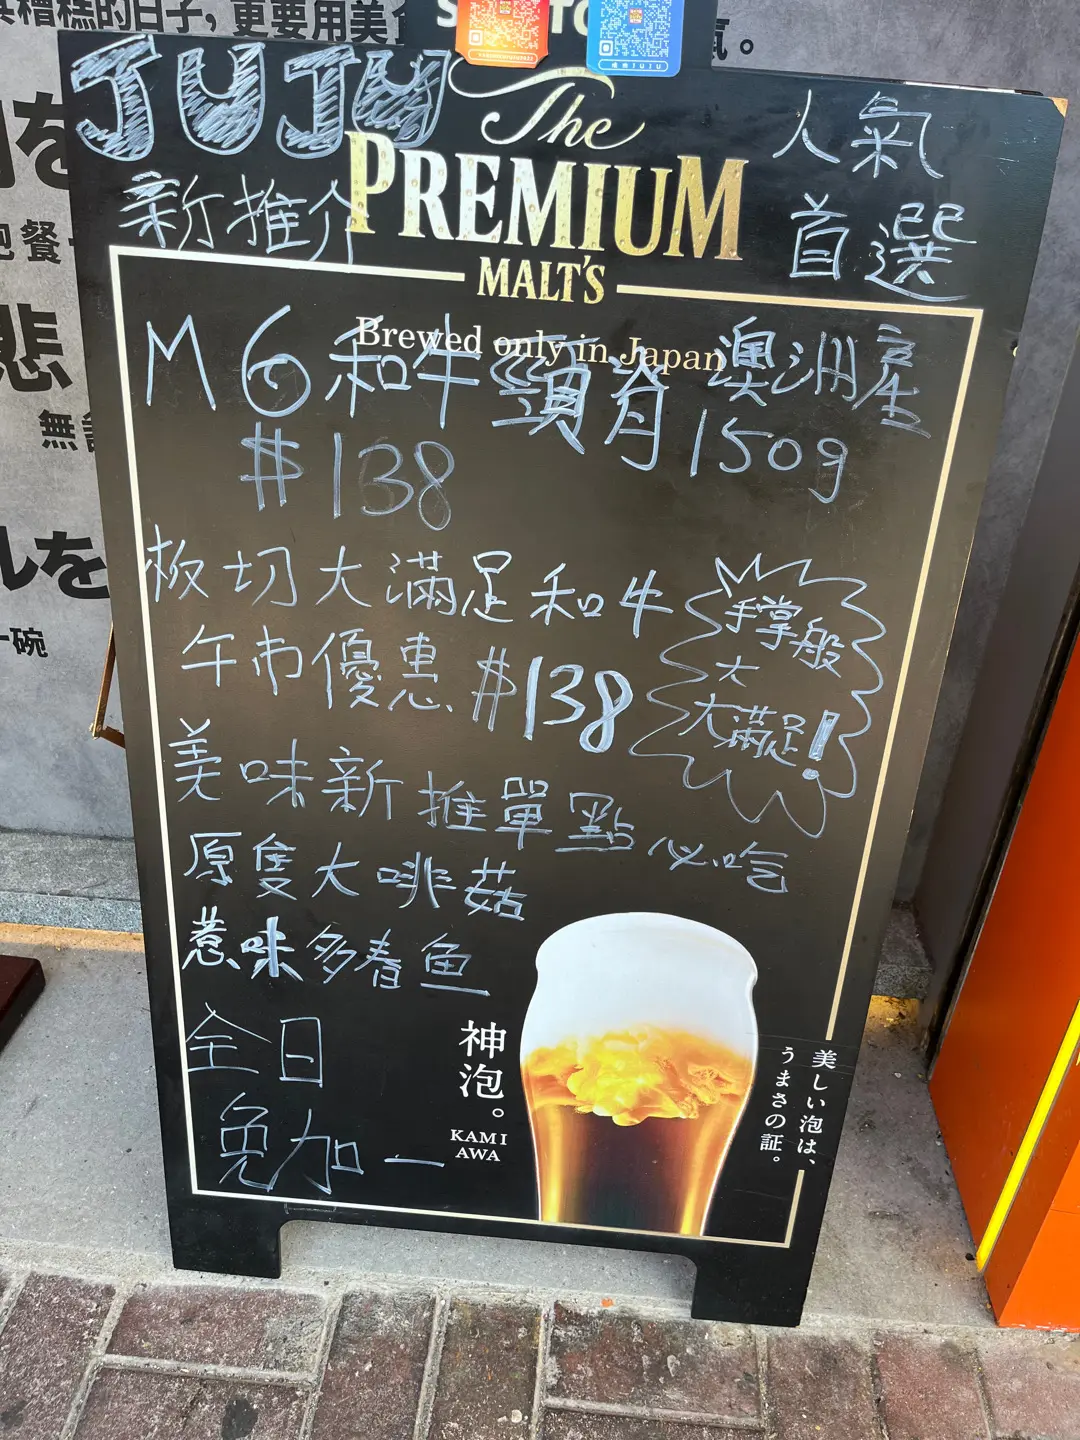 其糟糕的日子，更要用美食
氣。
を
飽餐
悲
無
ルを
一碗
JUJU
新推介
The
PREMIUM
MALT'S
人氣
首選
Brewed only in Japan
M6和牛頸脊 澳洲產
$138 150g
板切大滿足和牛
午市優惠 $138
手掌般
大
大滿足!
美味新推單點必吃
原隻大啡菇
惹味多春魚
全日
免加一
神泡。
KAMI
AWA
美しい泡は、
うまさの証。